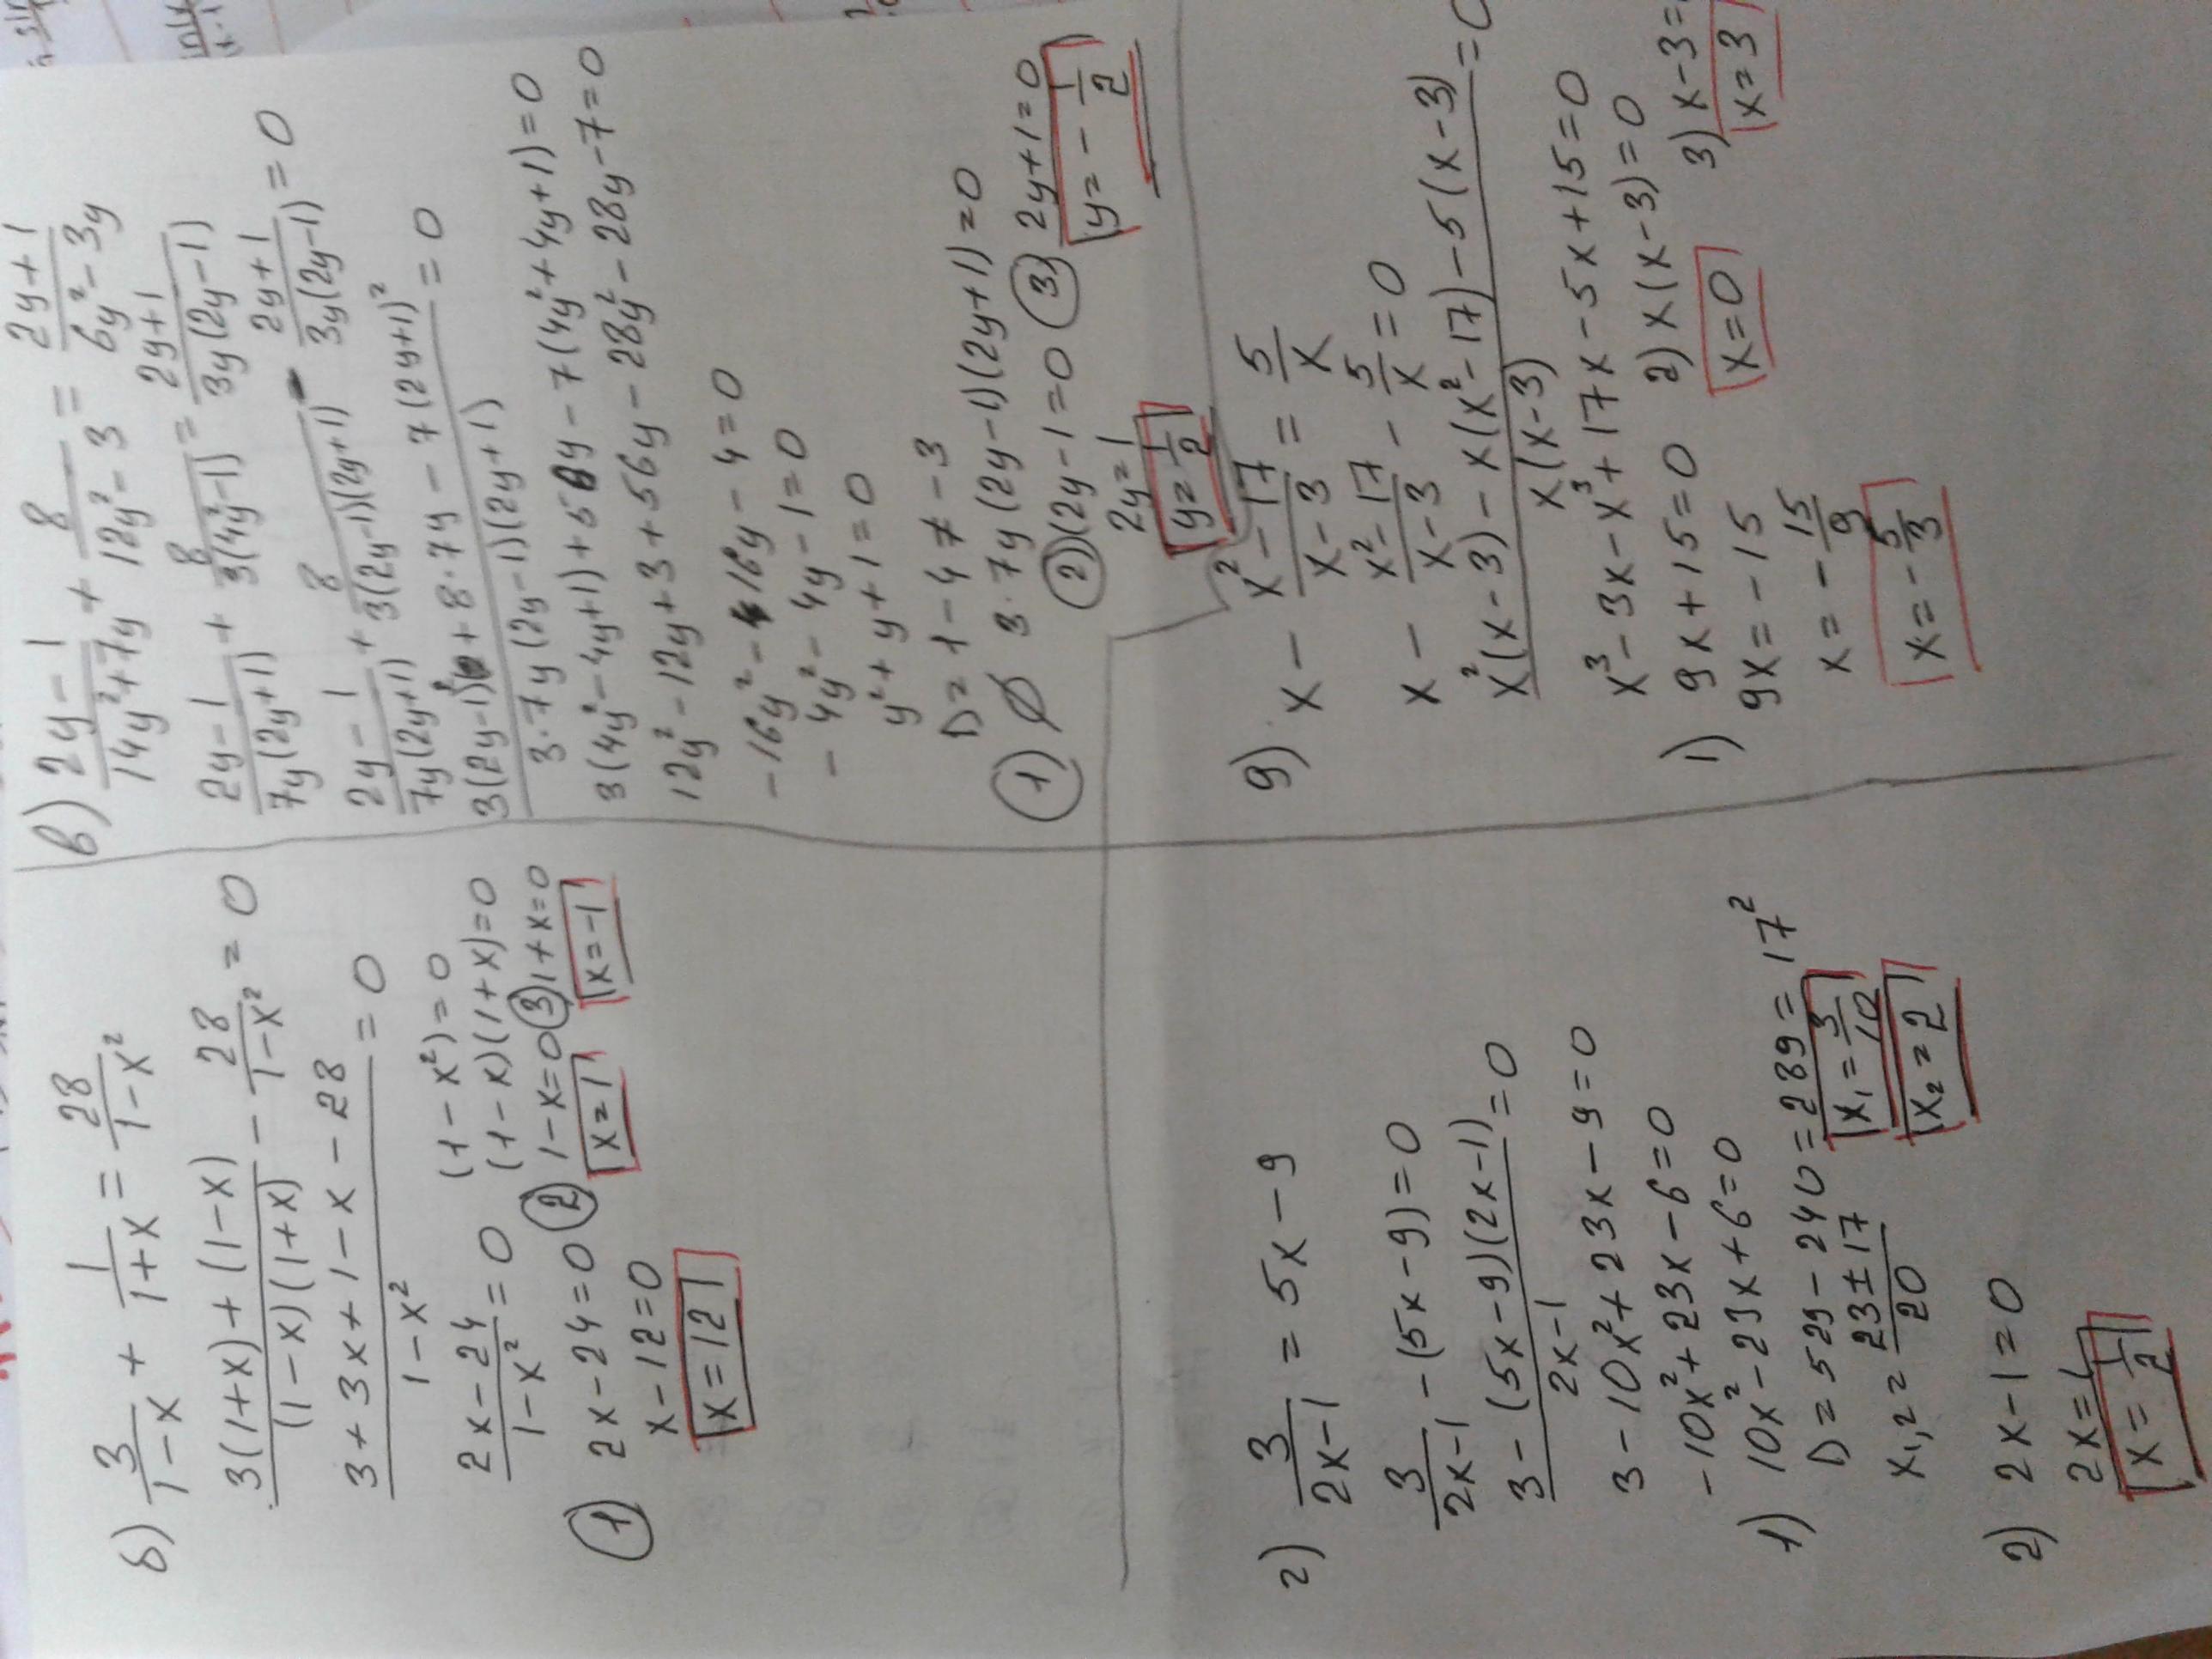 б) 3/(1-x) + 1/(1+x) = 28/(1-x²)
(3(1+x)+(1-x))/((1-x)(1+x)) - 28/(1-x²) = 0
(3+3x+1-x-28)/(1-x²) = 0
(2x-24)/(1-x²) = 0
(1-x²)=0
(1-x)(1+x)=0
① 2x-24=0 ② 1-x=0 ③ 1+x=0
x-12=0 x=1 x=-1
x=12
в) (2y-1)/(14y²+7y) + 8/(12y²-3) = (2y+1)/(6y²-3y)
(2y-1)/(7y(2y+1)) + 8/(3(4y²-1)) = (2y+1)/(3y(2y-1))
(2y-1)/(7y(2y+1)) + 8/(3(2y-1)(2y+1)) - (2y+1)/(3y(2y-1)) = 0
(3(2y-1)² + 8·7y - 7(2y+1)²)/(3·7y(2y-1)(2y+1)) = 0
3(4y²-4y+1)+56y-7(4y²+4y+1)=0
12y²-12y+3+56y-28y²-28y-7=0
-16y²-16y-4=0
-4y²-4y-1=0
y²+y+1=0
D=1-4≠-3
① ∅ 3·7y(2y-1)(2y+1)=0
② (2y-1=0 ③ 2y+1=0
2y=1 y=-1/2
y=1/2
г) 3/(2x-1) = 5x-9
3/(2x-1) - (5x-9)=0
(3-(5x-9)(2x-1))/(2x-1) = 0
3-10x²+23x-9=0
-10x²+23x-6=0
1) 10x²-23x+6=0
D=529-240=289=17²
x₁,₂=(23±17)/20 x₁=3/10
x₂=2
2) 2x-1=0
2x=1
x=1/2
g) x - (x²-17)/(x-3) = 5/x
x - (x²-17)/(x-3) - 5/x = 0
(x²(x-3)-x(x²-17)-5(x-3))/(x(x-3)) = 0
x³-3x-x³+17x-5x+15=0
1) 9x+15=0 2) x(x-3)=0
9x=-15 x=0 3) x-3=
x=-15/9 x=3
x=-5/3